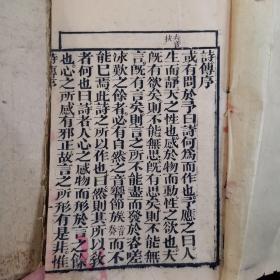 夫音扶
詩傳序
或有問於予曰詩何為而作也予應之曰人
生而靜天之性也感於物而動性之欲也夫
既有欲矣則不能無思既有思矣則不能無
言既有言矣則言之所不能盡而發於咨嗟
咏歎之餘者必有自然之音響節族音奏而不
能已焉此詩之所以作也曰然則其所以教
者何也曰詩者人心之感物而形於言之餘
也心之所感有邪正故言之所形有是非惟
詩傳序